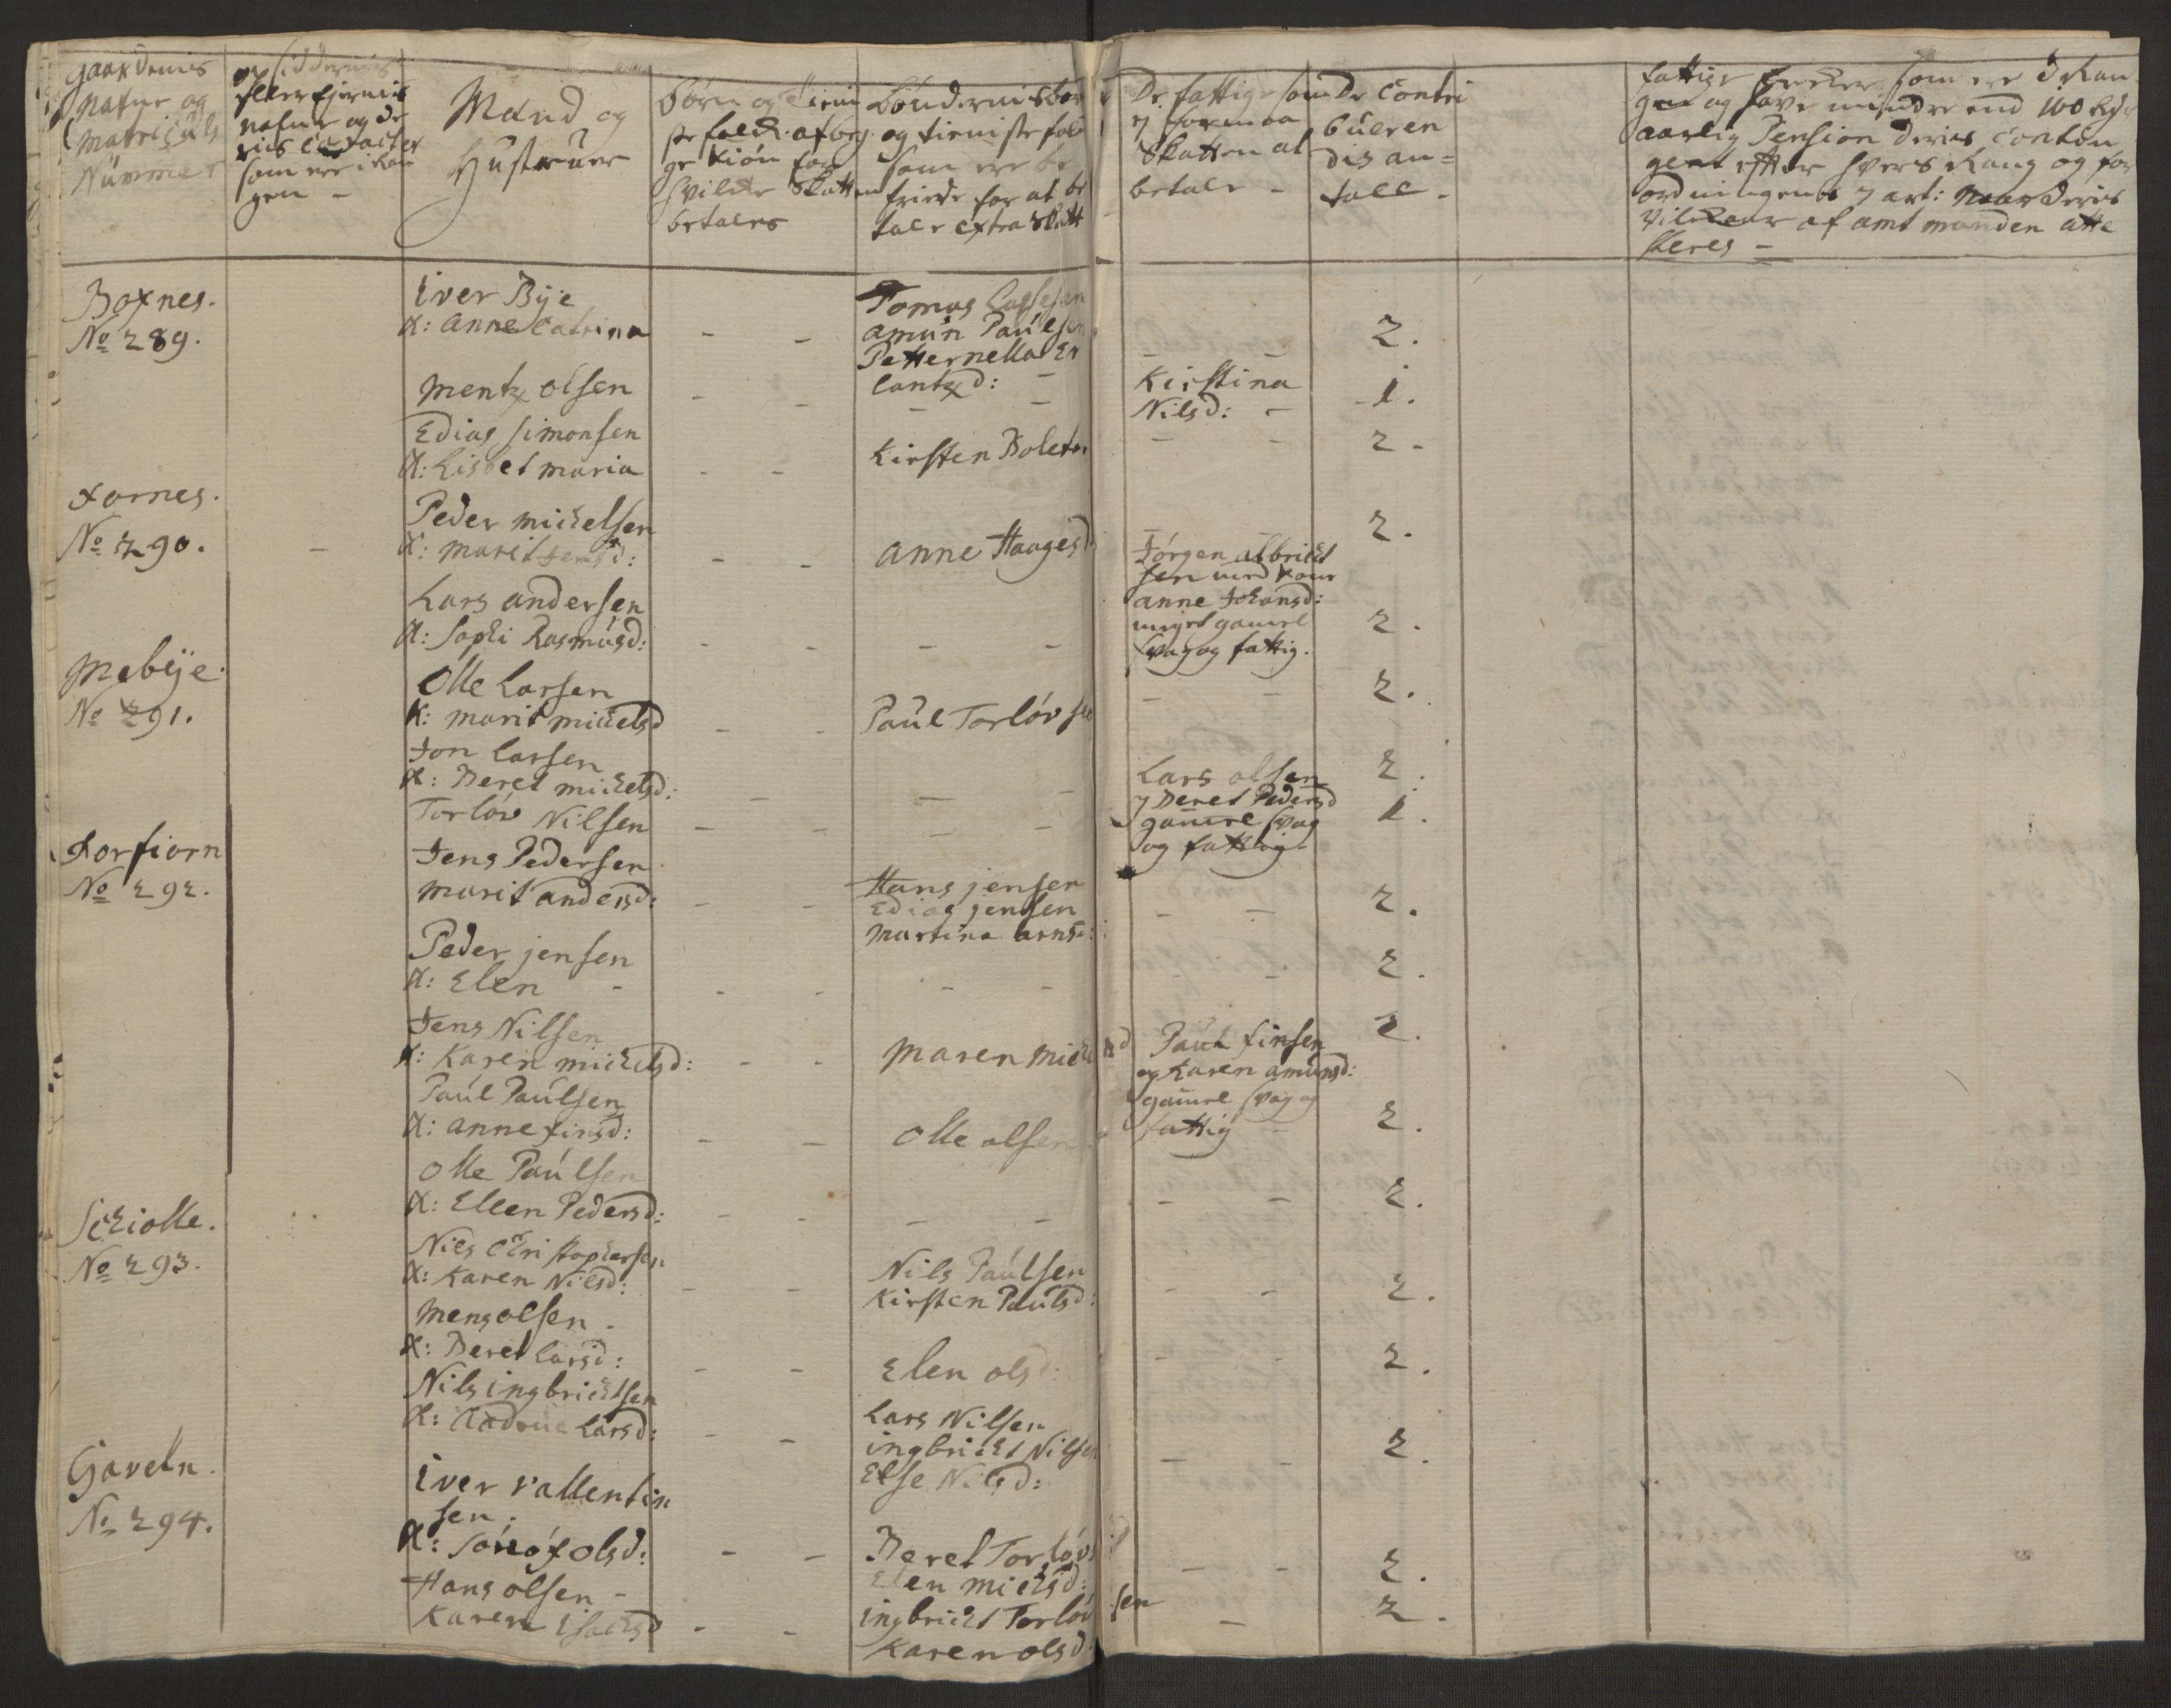 gaardenis
Nafne og
Matriculs
Nummer
opsiddernis
eller ejernis
nafne og de
ris Caracter
som ere i Ran
gen -
Mand og
Hustruer
Børn og tieni
ste folck
for
hvilcke Skatten
betales
bóndernis bør
og tieniste folck
som ere be
friede for at be
tale extra Skatt
De fattige som
ej formaa
Skatten at
betale -
De Contri
bueren
dis an=
tall -
fattige Encker som ere i Ran
gen og have mindre end 100 Rdr
aarlig Pension deris Contin
gent efter hvers Rang og for
ordningens 7 art: naar deris
vilckaar af amtmanden atte
steres =
Boxnes.
No 289.
Iver Bye
K: Anne Catrina - -
Tomas Lassesen
Amun Paulsen
Petternella Er
lantzd: -
2.
Mentz olsen - -
Kirstina
Nilsd: -
1.
Edias Simonsen
K: Lisbet maria - -
Kirsten Boleta
2.
Fornes.
No 290.
Peder michelsen
K: marit Jensd: - -
Anne Haagesd
2.
Lars andersen
K: Sophi Rasmusd: - - - -
Jørgen albricht
sen med kone
anne Johansd:
meget gamel
svag og fattig.
2.
Mebye.
No 291.
Olle Larsen
K: marit michelsd - -
Paul Torlóvsen
2.
Jon Larsen
K: Beret michelsd: - - -
2.
Torlóv Nilsen - - - -
Lars olsen
og Beret Pedersd
gamel svag
og fattig
1.
Forfiorn
No 292.
Jens Pedersen
Marit andersd: - -
Hans jensen
Edias jensen
Martina arnsd:
2.
Peder jensen
K: Elen - - - - -
2.
Jens Nilsen
K: Karen michelsd: - -
Maren michelsd
2.
Paul Paulsen
K: anne finsd: - -
Olle olsen
Paul finsen
og Karen amunsd:
gamel svag og
fattig
2.
Olle Paulsen
K: Elen Pedersd: - - - -
2.
Schiolle.
No 293.
Nils Christophersen
K: Karen Nilsd: - -
Nils Paulsen
Kirsten Paulsd:
2.
Mens olsen.
K: Beret Larsd: - -
Elen olsd:
2.
Nils ingbrichtsen
K: Larsd: - -
Lars Nilsen
ingbricht Nilsen
Else Nilsd:
2.
Gaveln.
No 294.
Iver Vallentin
sen.
K: Sónóf olsd: - -
Beret Torlóvsd
Elen michelsd:
2.
Hans olsen -
Karen Isachsd - -
ingbricht Torlóvsen
Karen olsd.
2.